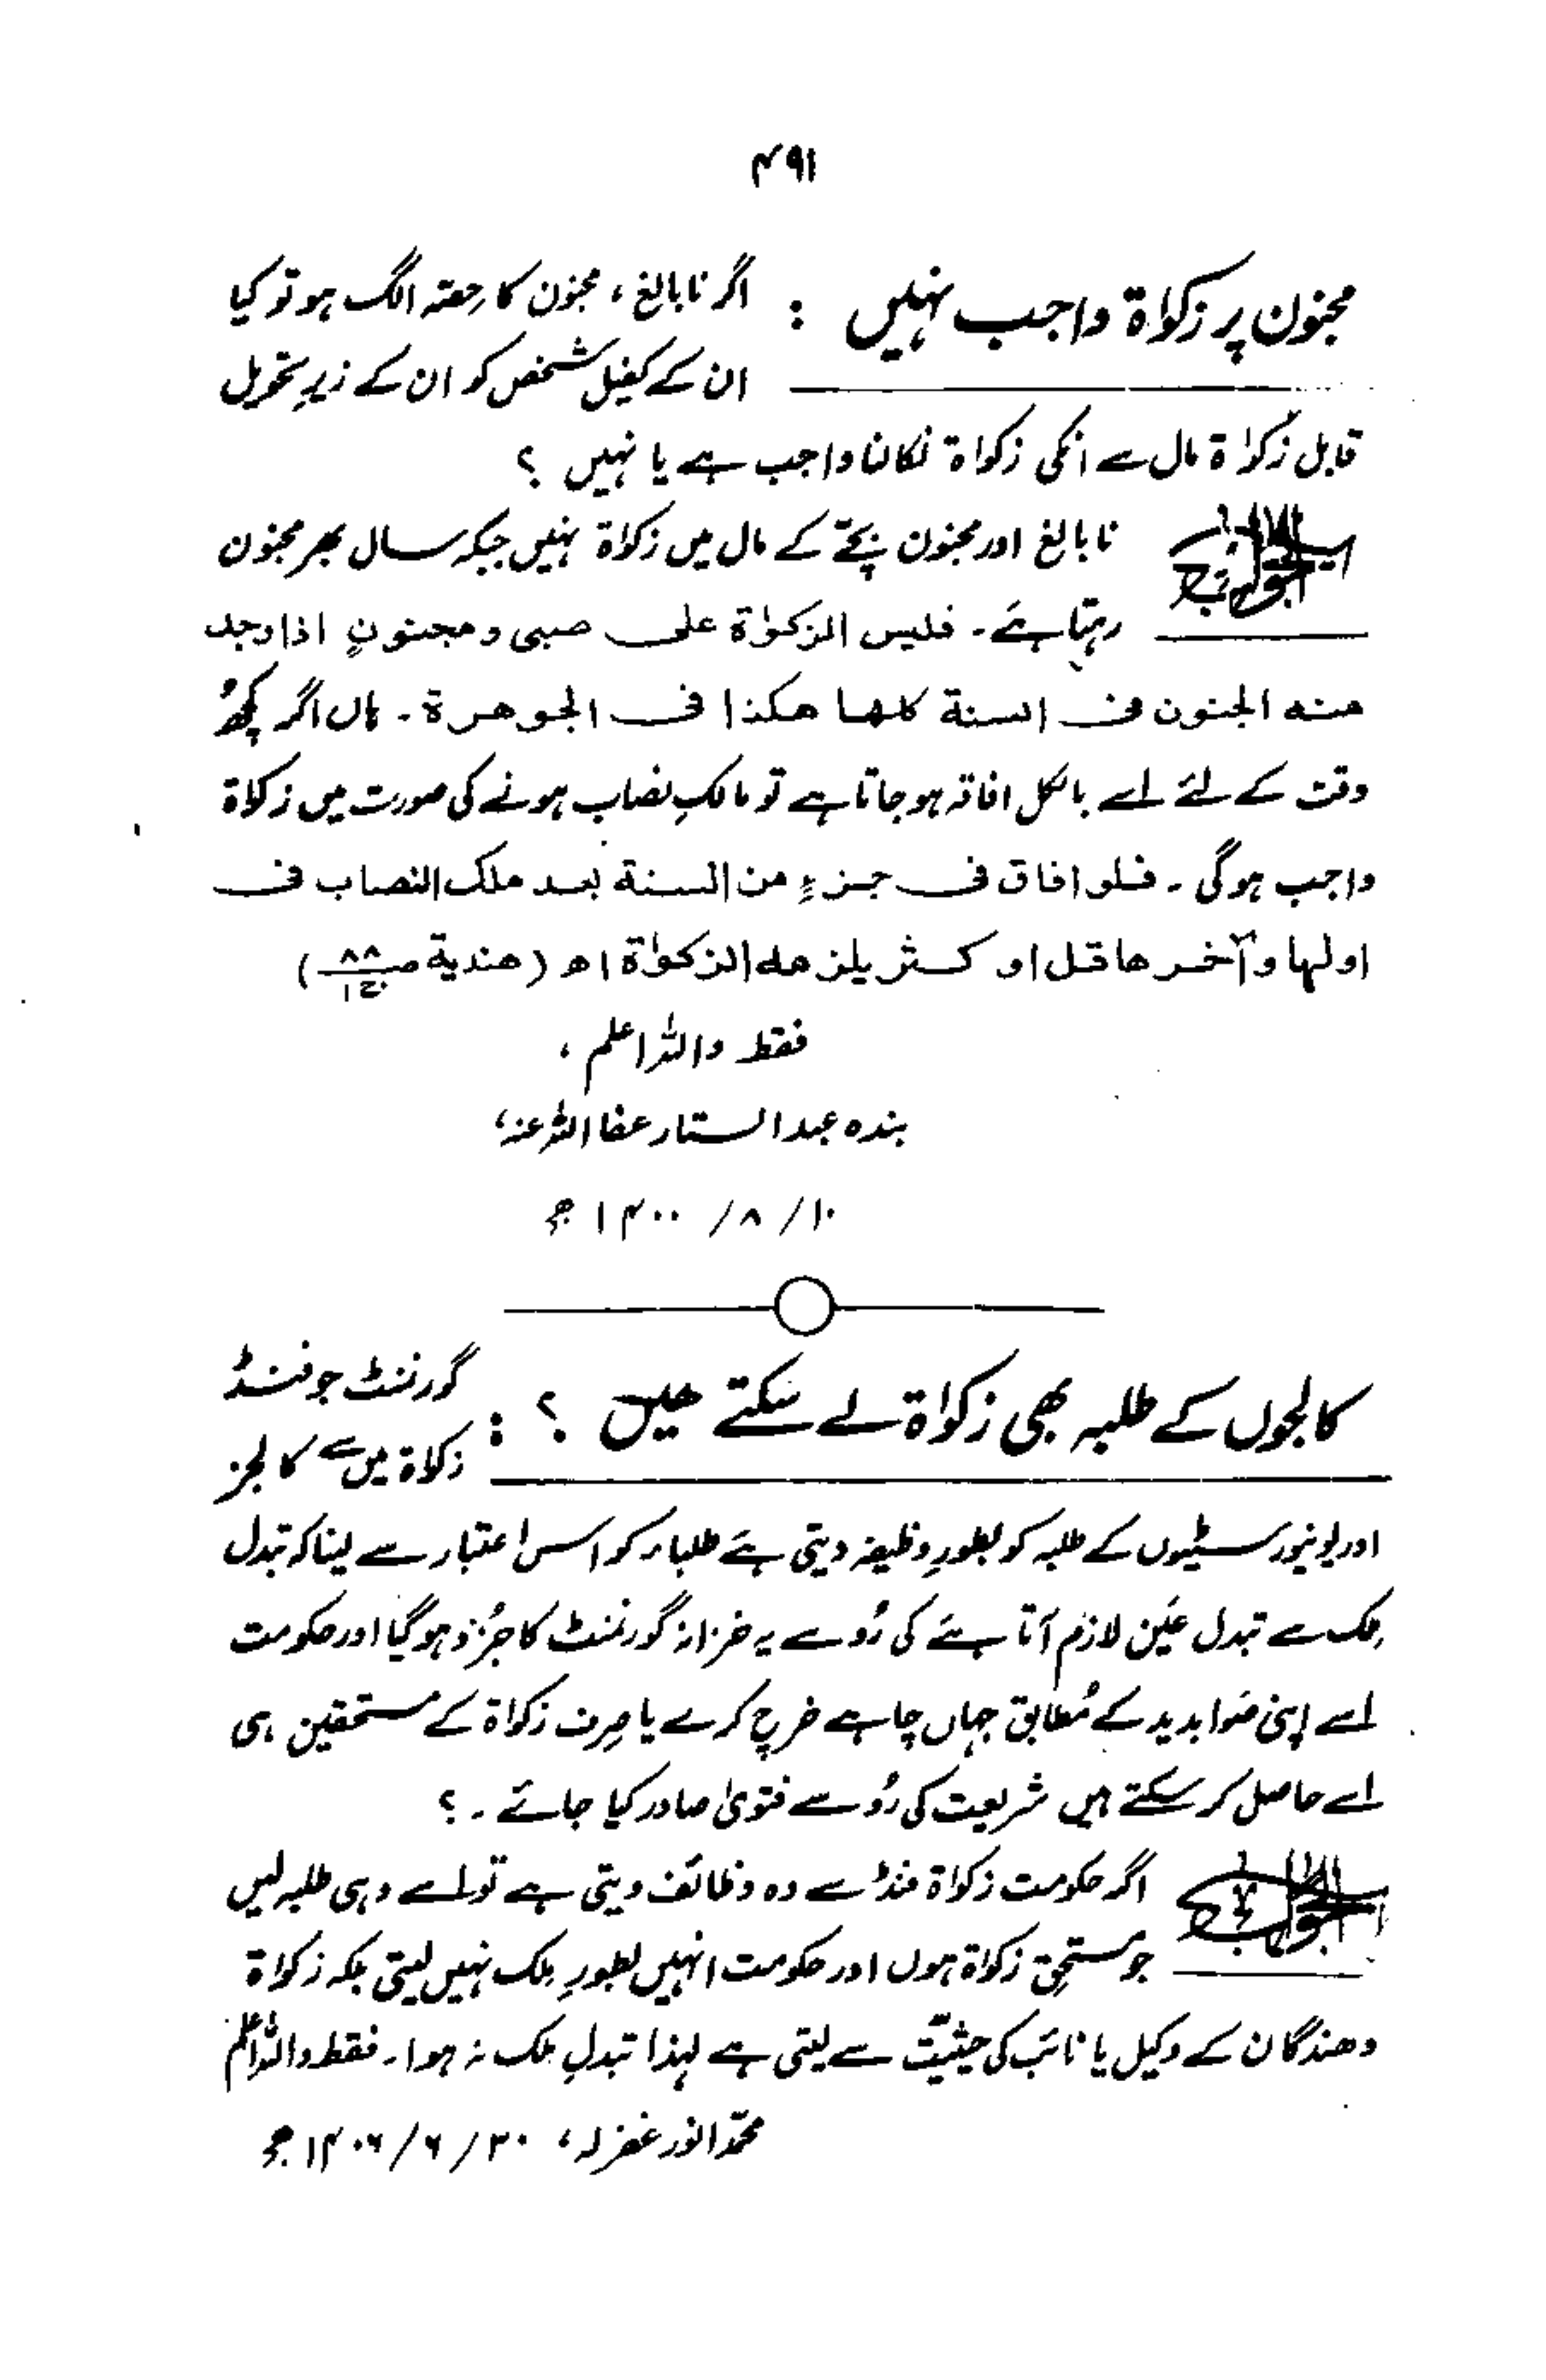 ۴۹۱
مجنون پر زکوٰۃ واجب نہیں : اگر نابالغ، مجنون کا حصّہ الگ ہو تو کیا
ان کے کفیل شخص کو ان کے زیرِ تحویل
قابل زکوٰۃ مال سے انکی زکوٰۃ نکالنا واجب ہے یا نہیں ؟
الجواب نابالغ اور مجنون بچّے کے مال میں زکوٰۃ نہیں جبکہ سال بھر مجنون
رہتا ہے۔ فلیس الزکوٰۃ علی صبی و مجنونٍ اذا وجد
منه الجنون فی السنة کلها هکذا فی الجوهرة۔ ہاں اگر کچھ
وقت کے لئے اسے بالکل افاقہ ہو جاتا ہے تو مالکِ نصاب ہونے کی صورت میں زکوٰۃ
واجب ہوگی۔ فلو افاق فی جزءٍ من السنة بعد ملک النصاب فی
اولها و آخرها قل او کثر یلزمه الزکوٰة اھ (هندیة ص۸۸ ج۱)
فقط واللہ اعلم،
بندہ عبدالستار عفا اللہ عنہ،
۱۰/ ۸/ ۱۴۰۰ ھ
کالجوں کے طلبہ بھی زکوٰۃ لے سکتے ہیں ؟ : گورنمنٹ جو فنڈ
زکوٰۃ میں سے کالجز
اور یونیورسٹیوں کے طلبہ کو بطورِ وظیفہ دیتی ہے طلباء کو اس اعتبار سے لینا کہ تبدل
مِلک سے تبدل عَین لازم آتا ہے کی رُو سے یہ خزانہ گورنمنٹ کا جُزو ہو گیا اور حکومت
اسے اپنی صَوابدید کے مُطابق جہاں چاہے خرچ کرے یا صِرف زکوٰۃ کے مستحقین ہی
اسے حاصل کر سکتے ہیں شریعت کی رُو سے فتویٰ صادر کیا جائے۔ ؟
الجواب اگر حکومت زکوٰۃ فنڈ سے وہ وظائف دیتی ہے تو اسے وہی طلبہ لیں
جو مستحِق زکوٰۃ ہوں اور حکومت انہیں بطورِ مِلک نہیں لیتی بلکہ زکوٰۃ
دھندگان کے وکیل یا نائب کی حیثیّت سے لیتی ہے لہذا تبدلِ مِلک نہ ہوا۔ فقط واللہ اعلم
محمّد انور غفرلہ، ۳۰/ ۶/ ۱۴۰۶ھ